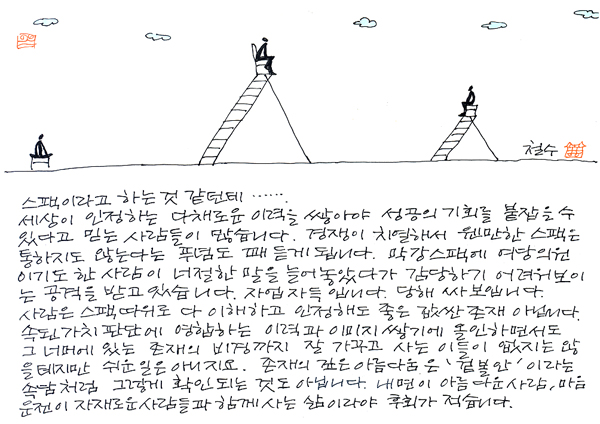 철수
스팩이라고 하는 것 같던데 …….
세상이 인정하는 다채로운 이력을 쌓아야 성공의 기회를 붙잡을 수
있다고 믿는 사람들이 많습니다. 경쟁이 치열해서 웬만한 스팩은
통하지도 않는다는 푸념도 꽤 듣게 됩니다. 막강스팩에 여당의원
이기도 한 사람이 너절한 말을 늘어놓았다가 감당하기 어려워보이
는 공격을 받고 있습니다. 자업자득입니다. 당해 싸 보입니다.
사람은 스팩따위로 다 이해하고 인정해도 좋은 값싼 존재 아닙니다.
속된가치 판단에 영합하는 이력과 이미지 쌓기에 올인하면서도
그 너머에 있는 존재의 비경까지 잘 가꾸고 사는 이들이 없지는 않
을테지만 쉬운일은 아니지요. 존재의 깊은아름다움은 '겉볼안'이라는
속담처럼 그렇게 확인되는 것도 아닙니다. 내면이 아름다운사람, 마음
운전이 자재로운사람들과 함께 사는 삶이라야 후회가 적습니다.